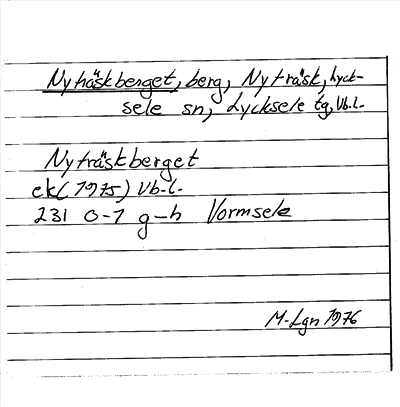 Nyträskberget, berg, Nyträsk, Lyck-
sele sn, Lycksele tg, Vb.l.
Nyträskberget
ek(1975) Vb.l.
231 0-1 g-h Vormsele
M-Lgn 1976